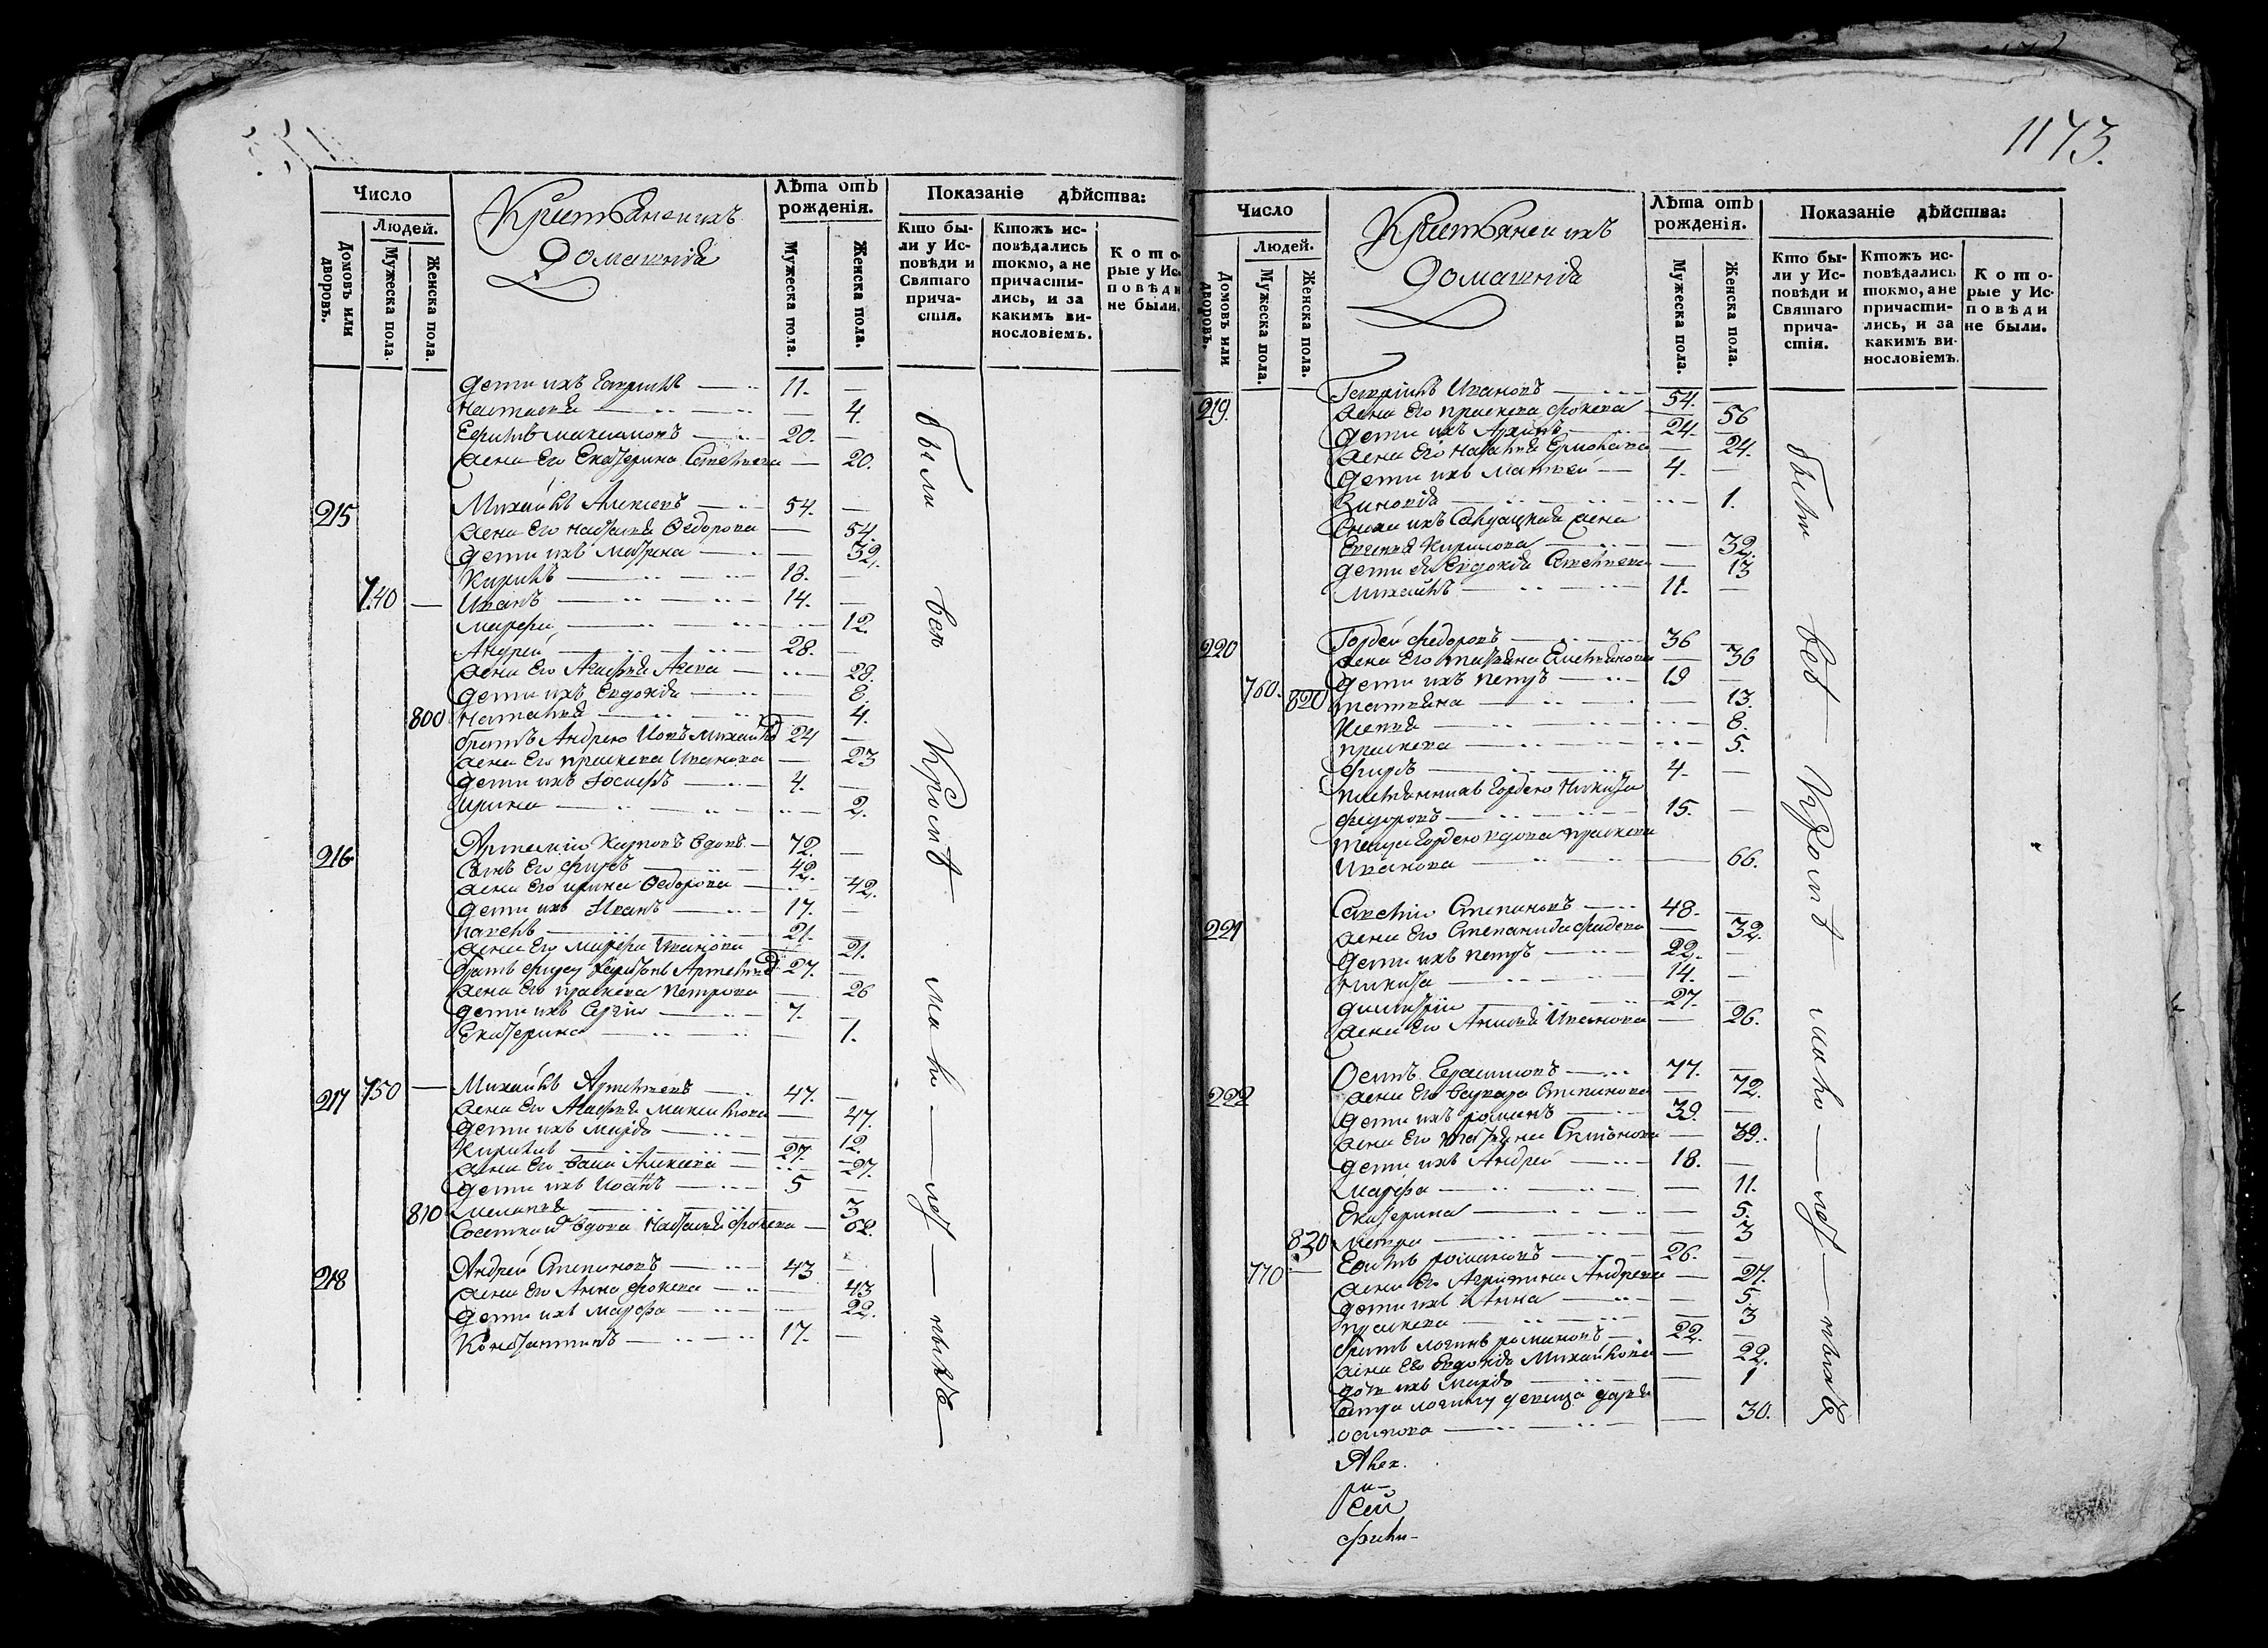 1173.
Число
Людей.
Домовъ или дворовъ.
Мужеска пола.
Женска пола.
Крестьяне и ихъ
Домашнія
Лѣта отъ рожденія.
Мужеска пола.
Женска пола.
Показаніе дѣйства:
Кто были у Исповѣди и Святаго причастія.
Ктожъ исповѣдались токмо, а не причастились, и за какимъ винословіемъ.
Которые у Исповѣди не были.
дети ихъ Гаврилъ 11. —
Настасья — 4.
Ефимъ 20. —
жена Его Екатерина Савельева — 20.
215 Михайлъ Алексеевъ 54. —
жена Его Наталья Ѳедорова — 54.
дети ихъ Матрена — 32.
Кирилъ 18. —
740 — Иванъ 14. —
Марфа — 12.
Андрей 28. —
жена Его Агафья — 28.
дети ихъ Евдокія — 8.
800 Наталья — 4.
братъ Андрею Михайловъ 24 —
жена Его Прасковья Иванова — 23
дети ихъ Іосифъ 4. —
Ирина — 2.
216 Артемій Карповъ вдовъ 72. —
Сынъ Его Фирсъ 42. —
жена Его Ирина Ѳедорова — 42.
дети ихъ Иванъ 17. —
Павелъ 21. —
жена Его Марфа Иванова — 21.
братъ Фирсу Харитонъ Артемьевъ 27. —
жена Его Прасковья Петрова — 26
дети ихъ Сергій 7. —
Екатерина — 1.
217 750 — Михайлъ Артемьевъ 47. —
жена Его Агафья — 47.
дети ихъ Марья — 12.
Кирилъ 27. —
жена Его Васса Алексеева — 27.
дети ихъ Иванъ 5 —
810 Меланья — 3
вдова Наталья Фокеева — 62.
218 Андрей Степановъ 43 —
жена Его Анна Фокеева — 43
дети ихъ Марфа — 22.
Константинъ 17. —
были всѣ
Число
Людей.
Домовъ или дворовъ.
Мужеска пола.
Женска пола.
Крестьяне и ихъ
Домашнія
Лѣта отъ рожденія.
Мужеска пола.
Женска пола.
Показаніе дѣйства:
Кто были у Исповѣди и Святаго причастія.
Ктожъ исповѣдались токмо, а не причастились, и за какимъ винословіемъ.
Которые у Исповѣди не были.
219. Гаврилъ Ивановъ 54. —
жена Его Прасковья Фокеева — 56
дети ихъ Архипъ 24. —
жена Его Наталья Ермолаева — 24.
дети ихъ Матвей 4. —
Зиновія — 1.
Сноха ихъ Солдатская жена
Евгенія Кирилова — 32.
дети ея Евдокія Савельева — 13
Михайлъ 11. —
220 Гордей Федоровъ 36 —
жена Его Татьяна Емельянова — 36
760. дети ихъ Петръ 19 —
820 Татьяна — 13.
Ксенья — 8.
Прасковья — 5.
Фирсъ 4. —
племянникъ Гордею Никита
Федоровъ 15. —
теща Гордею вдова Прасковья
Иванова — 66.
221 Савелій Степановъ 48. —
жена Его Степанида Фадеева — 32.
дети ихъ Петръ 22. —
Никита 14. —
Дмитрій 27. —
жена Его Анисья Иванова — 26.
222 Осипъ Герасимовъ 77. —
жена Его Варвара Степанова — 72.
дети ихъ Романъ 39. —
жена Его Татьяна — 39.
дети ихъ Андрей 18. —
Марфа — 11.
Екатерина — 5.
830 — 3
770 — Ефимъ Романовъ 26. —
жена Его Агрипина Андреева — 27.
дети ихъ Анна — 5.
Прасковья — 3
братъ Логинъ Романовъ 22. —
жена Его Евдокія Михайлова — 22.
дочь ихъ Марья — 1
сестра Логину девица Дарья
Осипова — 30.
были всѣ